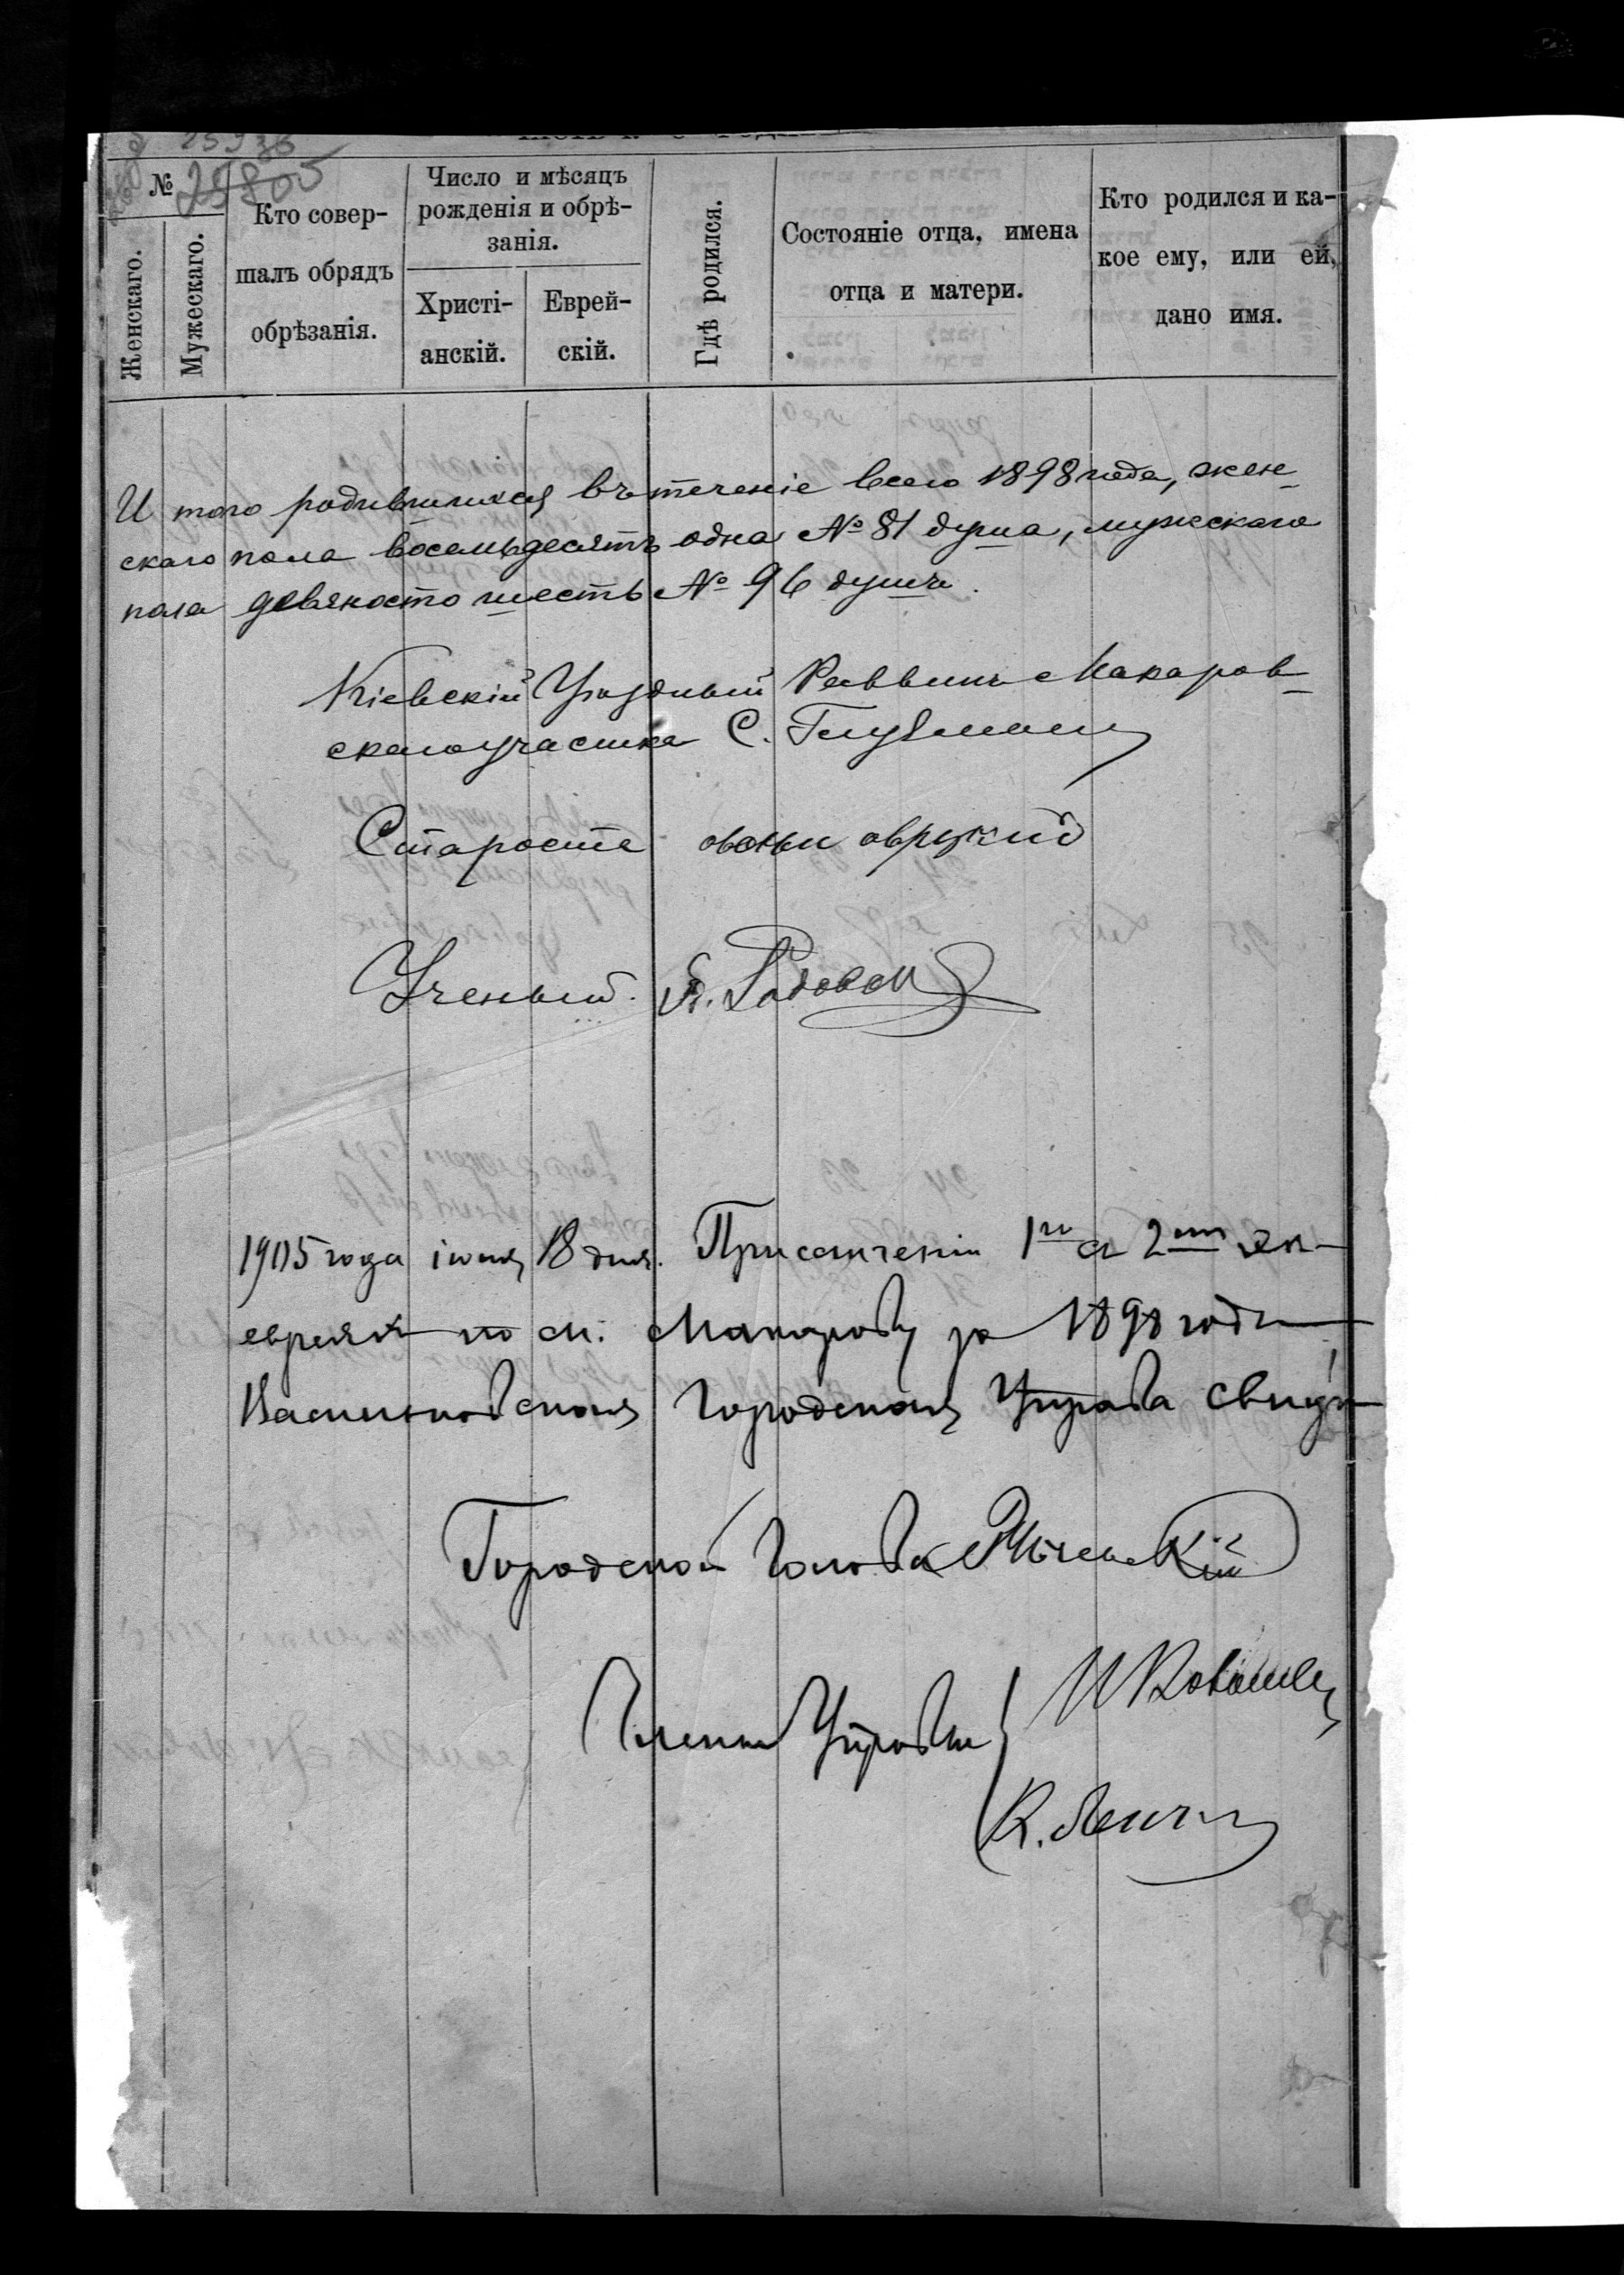 25936
№ 25805
Женскаго.
Мужескаго.
Кто совер-
шалъ обрядъ
обрѣзанія.
Число и мѣсяцъ
рожденія и обрѣ-
занія.
Христі-
анскій.
Еврей-
скій.
Гдѣ родился.
Состояніе отца, имена
отца и матери.
Кто родился и ка-
кое ему, или ей,
дано имя.
И того родившихся въ теченіе всего 1898 года, жен-
скаго пола восемьдесятъ одна № 81 душа, мужескаго
пола девяносто шесть № 96 душъ.
Кіевскій Уѣздный Раввинъ Макаров-
скаго участка С. Глузман
Староста овруцкий
Ученый
1905 года іюня 18 дня. При сличеніи 1го со 2мъ эк-
евреях по м. Макарову за 1898 годъ
Васильковская Городская Управа свид
Городской Голова
Члены Управы
И Ковал
К.